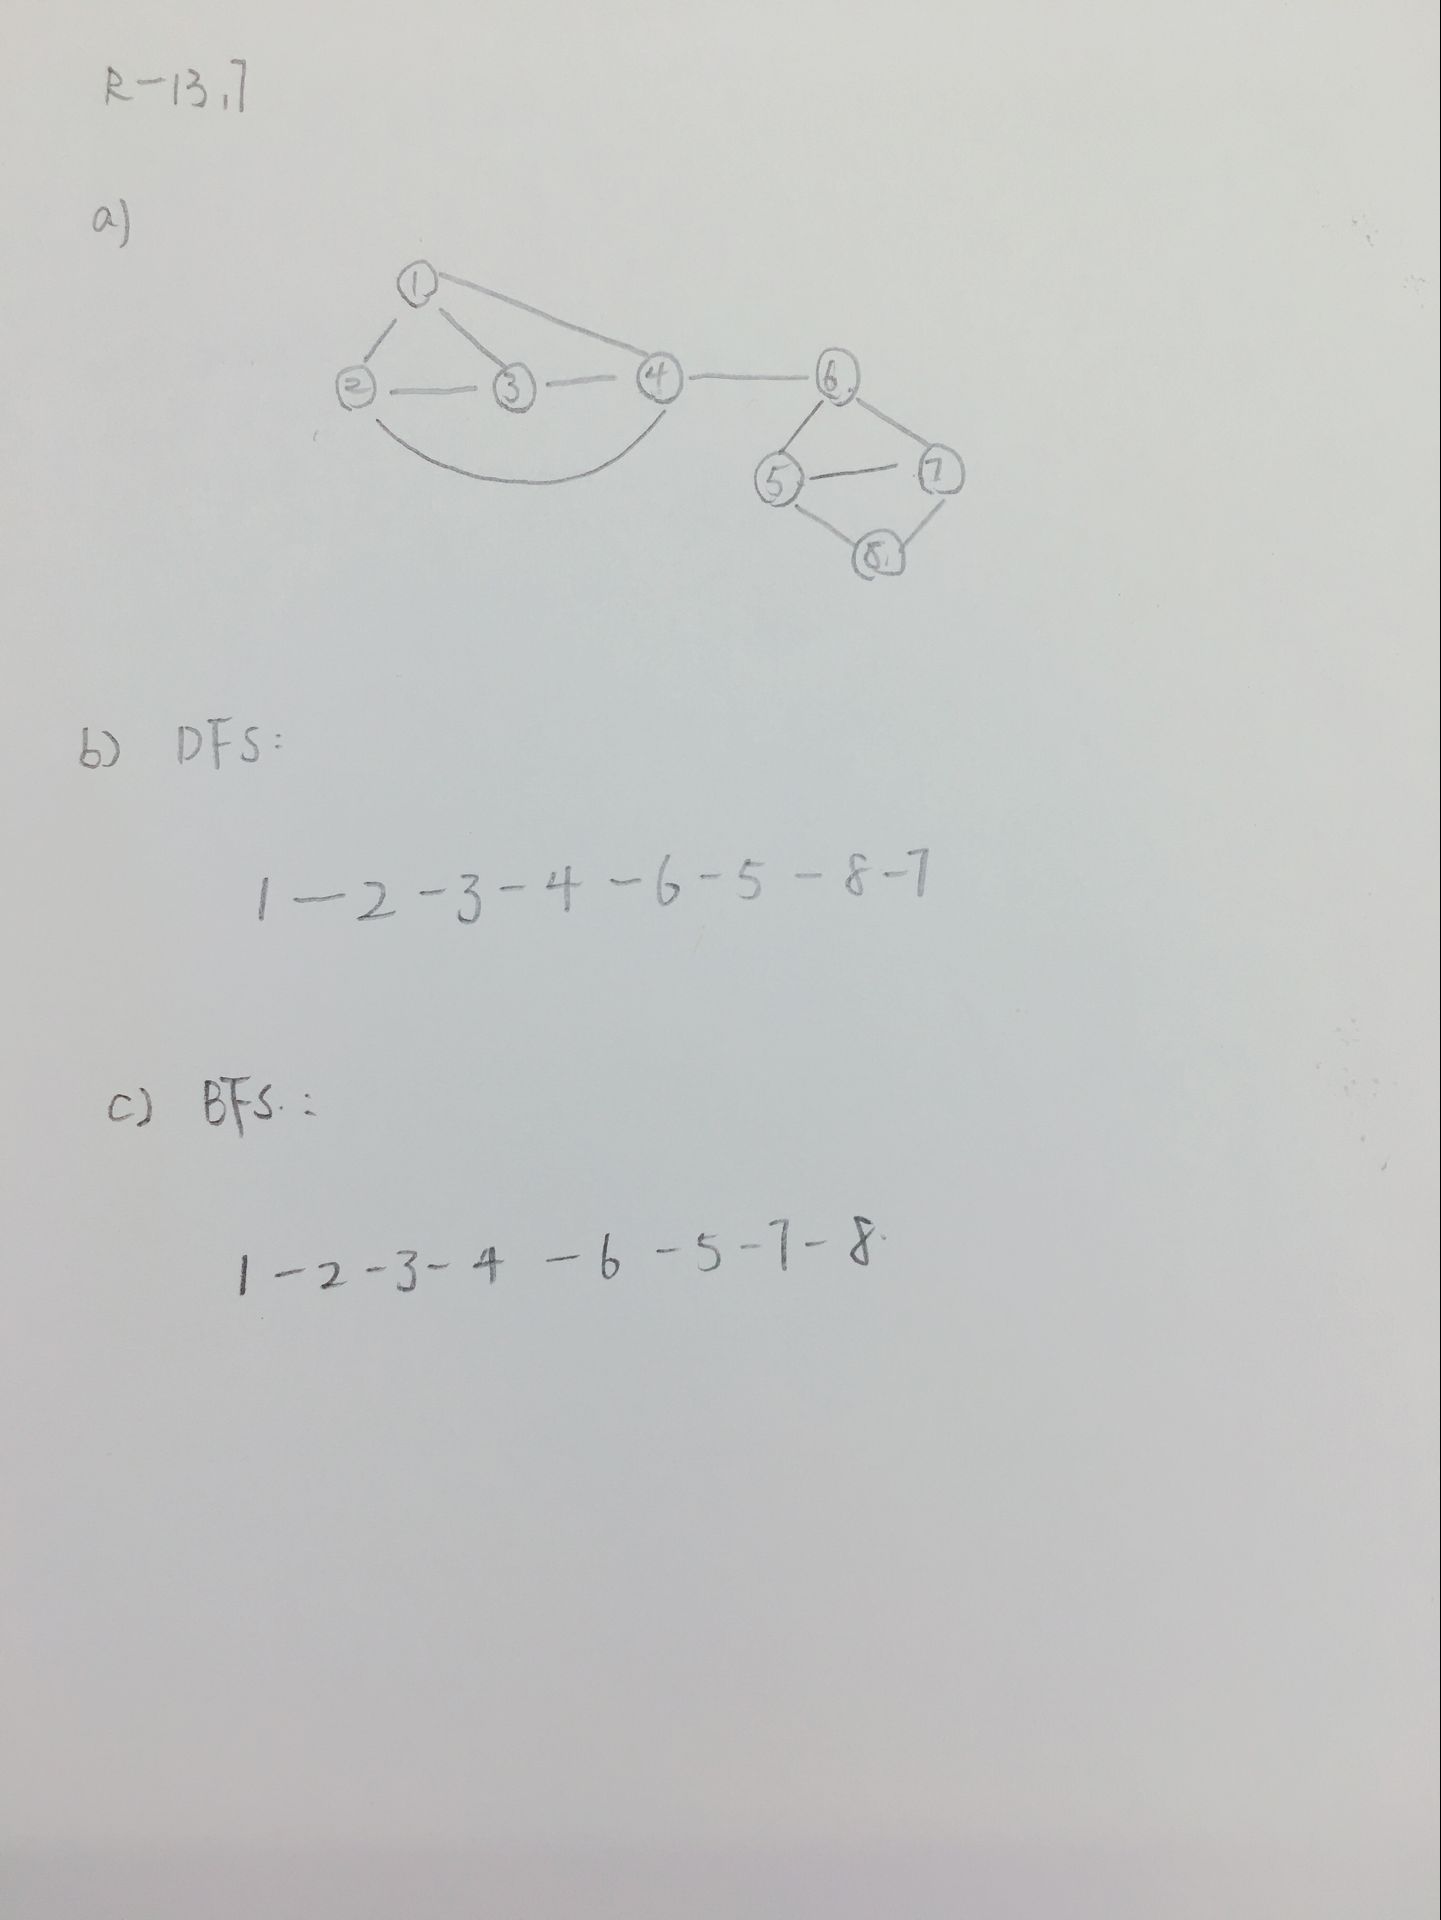 R-13.7
a)
1
2 3 4 6
5 7
8
b) DFS:
1-2-3-4-6-5-8-7
c) BFS.:
1-2-3-4-6-5-7-8.